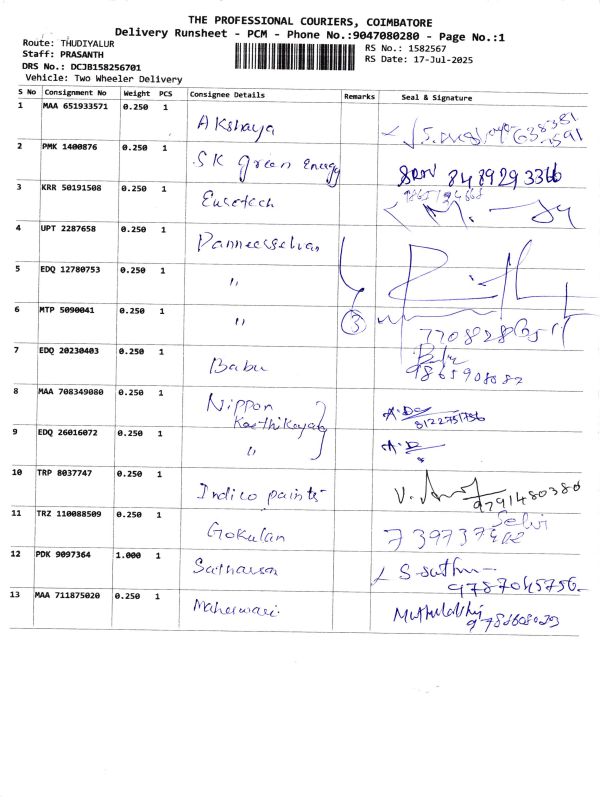 THE PROFESSIONAL COURIERS, COIMBATORE
Delivery Runsheet - PCM - Phone No.:9047080280 - Page No.:1
Route: THUDIYALUR
Staff: PRASANTH
DRS No.: DCJB158256701
Vehicle: Two Wheeler Delivery
RS No.: 1582567
RS Date: 17-Jul-2025
S No Consignment No Weight PCS Consignee Details Remarks Seal & Signature
1 MAA 651933571 0.250 1 Akshaya
2 PMK 1400876 0.250 1 SK green Energy 8489293366
3 KRR 50191508 0.250 1 Eurotech
4 UPT 2287658 0.250 1 Panneerselvan
5 EDQ 12780753 0.250 1 "
6 MTP 5090041 0.250 1 " 3
7 EDQ 20230403 0.250 1 Babu 9865908082
8 MAA 708349080 0.250 1 Nippon
Karthikeyan 8122751756
9 EDQ 26016072 0.250 1 "
10 TRP 8037747 0.250 1 Indico paints 9791480380
11 TRZ 110088509 0.250 1 Gokulan Selvi
12 PDK 9097364 1.000 1 9787045756
13 MAA 711875020 0.250 1 Maheswari